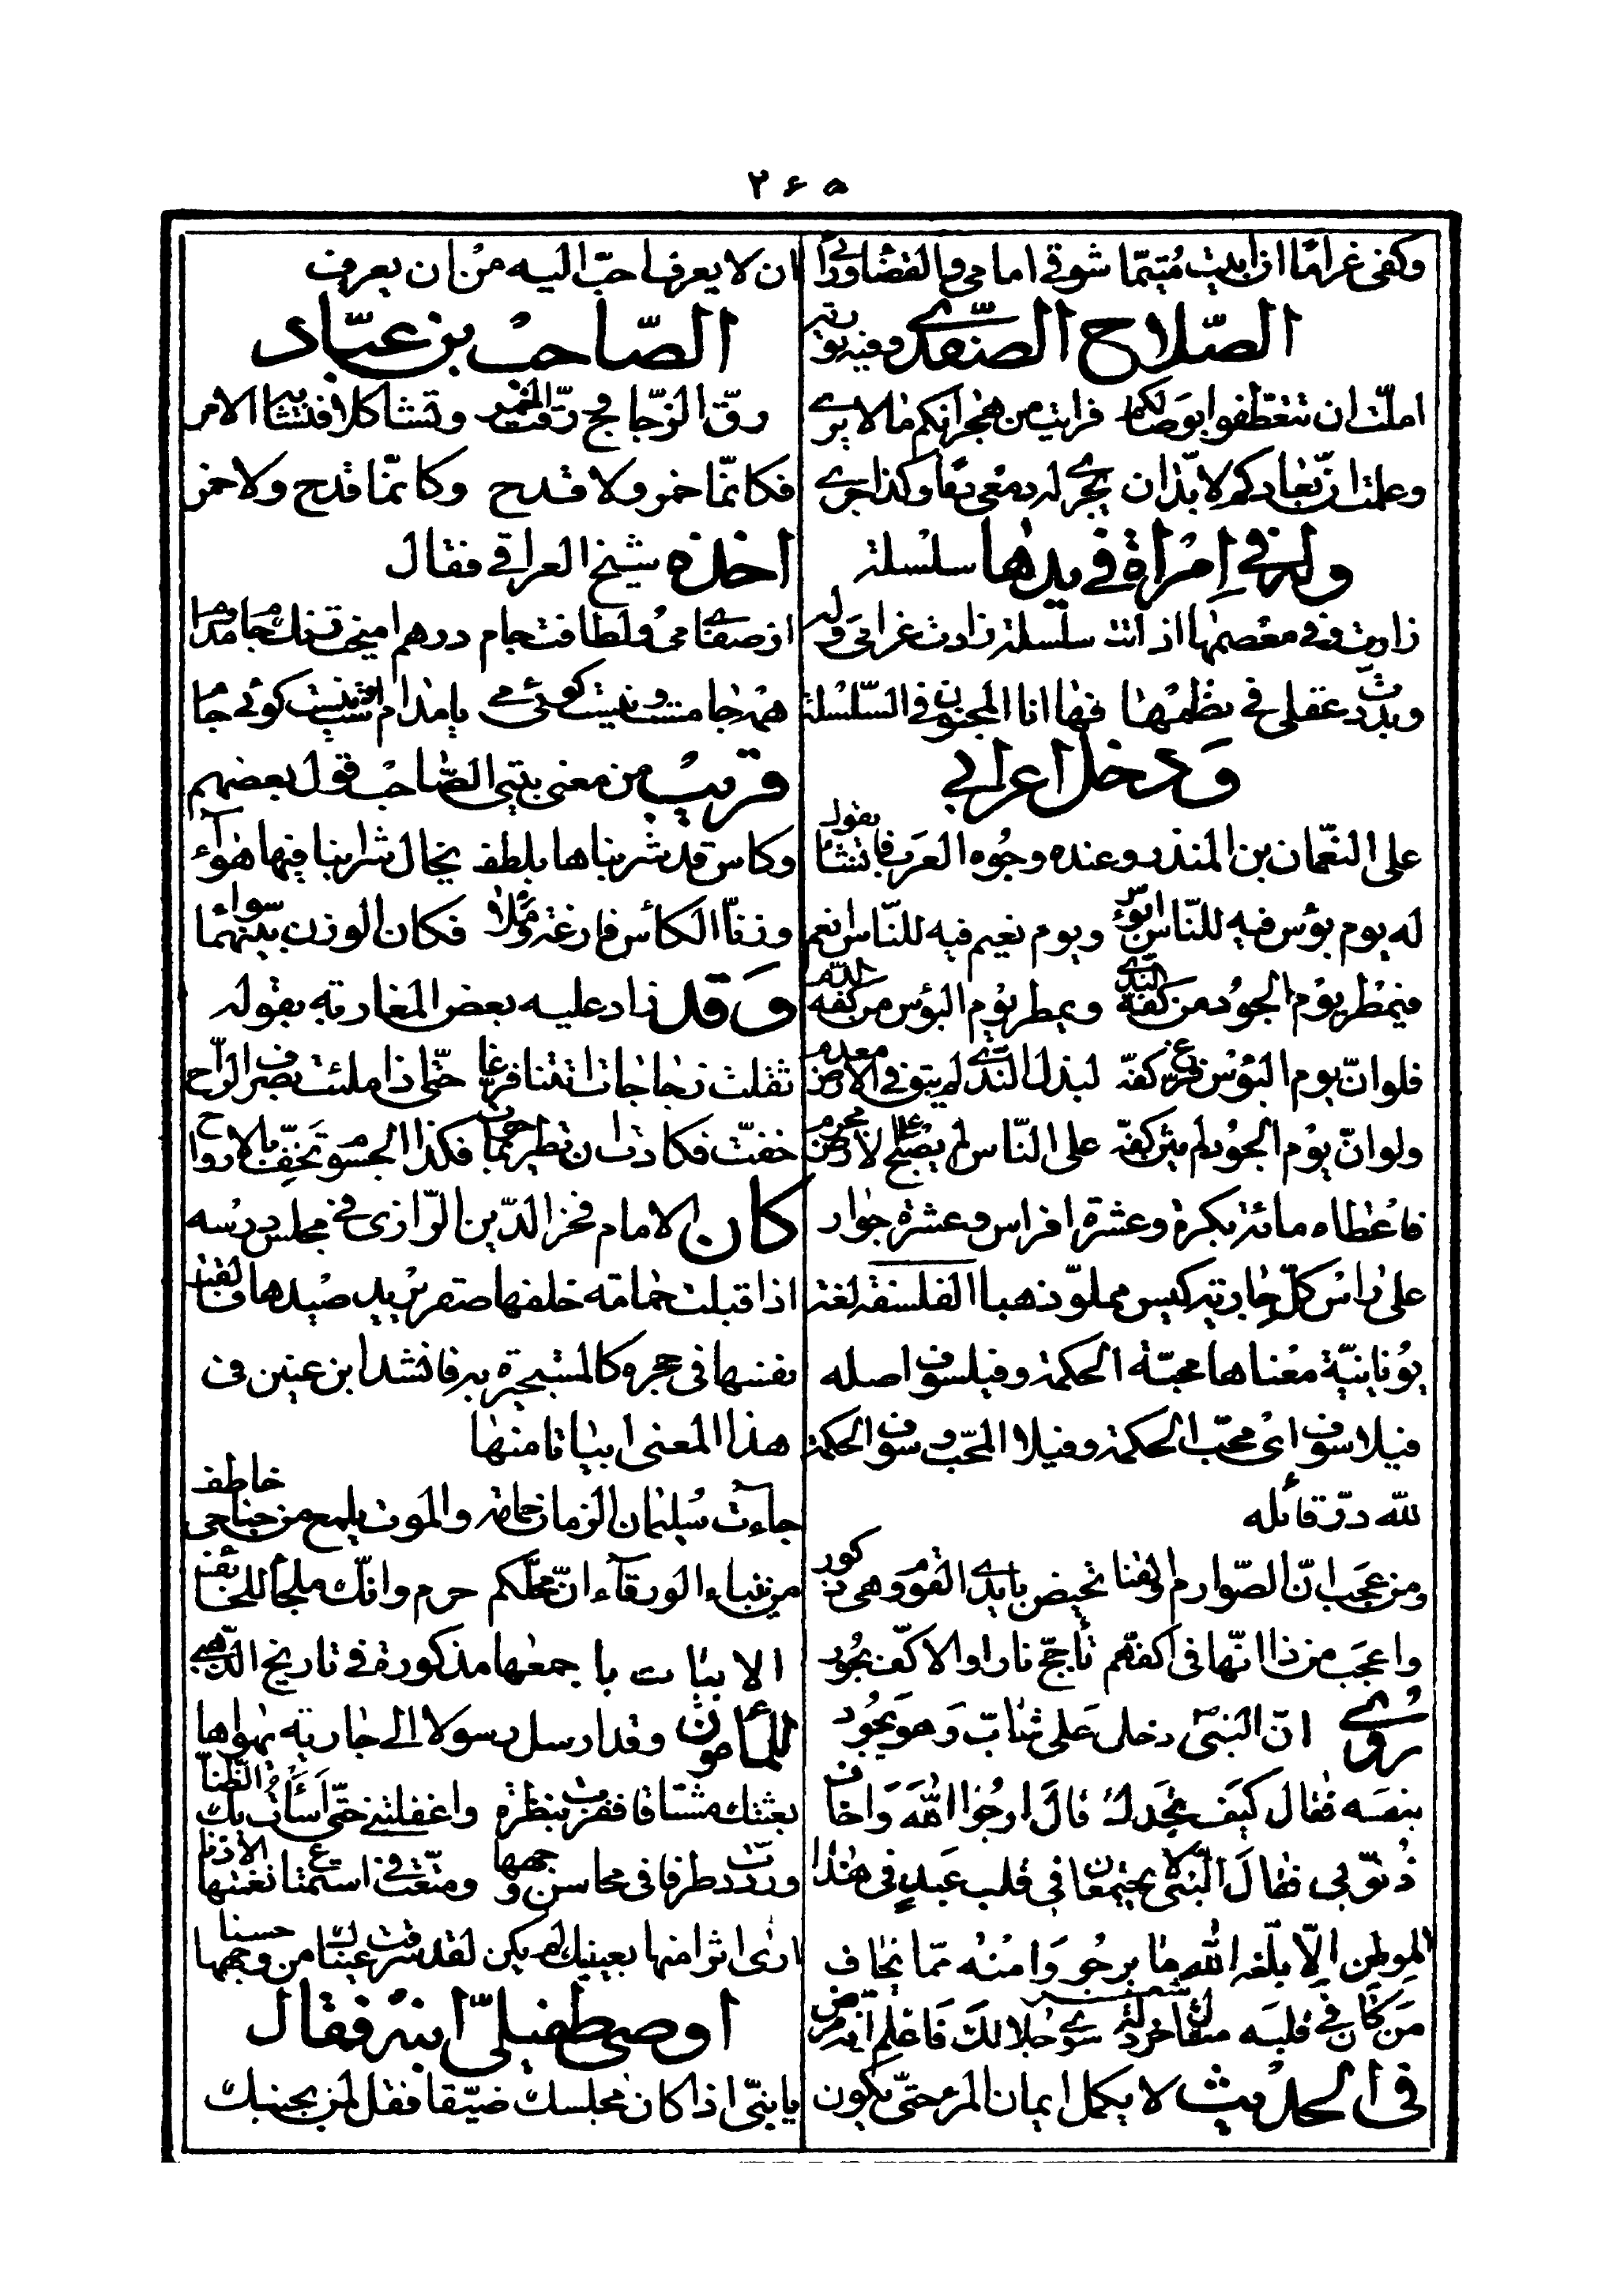 ٢۶۵
وكفى غراما ان ابيت متيما شوقي امامي والقضاء ورائي
الصّلاح الصّفدي وفيه تورية
املت ان تتعطّفوا بوصالكم فرايت من هجرانكم ما لا يرى
وعلمت ان بعادكم لا بدّ ان يجرى له دمعى دما وكذا جرى
وله في امراة في يدها سلسلة
زادت في معصمها اذ اتت سلسلة زادت غرامي وله
وبدّدت عقلى في نظمها فها انا المجنون في السّلسلة
ودخل اعرابي
على النعمان بن المنذر وعنده وجوه العرب فانشأ يقول
له يوم بؤس فيه للنّاس ابؤس ويوم نعيم فيه للنّاس انعم
فيمطر يوم الجود من كفّه النّدى ويمطر يوم البؤس من كفّه الدّم
فلو انّ يوم البؤس فرّغ كفّه لبذل النّدى لم يبق في الارض معدم
ولو انّ يوم الجود لم يثن كفّه على النّاس لم يصبح على الارض مجرم
فاعطاه مائة بكرة وعشرة افراس وعشرة جوار
على راس كلّ جارية كيس مملوّ ذهبا الفلسفة لغة
يونانيّة معناها محبّة الحكمة وفيلسوف اصله
فيلاسوف اى محبّ الحكمة وفيلا المحبّ وسوف الحكمة
لله درّ قائله
ومن عجب انّ الصّوارم والقنا تحيض بايدى القوم وهى ذكور
واعجب من ذا انّها في اكفّهم تاجّج نارا والاكفّ بحور
روى انّ النبىّ ص دخل على شابّ وهو يجود
بنفسه فقال كيف تجدك قال ارجو الله واخاف
ذنوبي فقال النبىّ لا يجتمعان في قلب عبد في هذا
الموطن الّا بلّغه الله ما يرجو وامنه ممّا يخاف
من كان في قلبه مثقال خردلة سوى جلالك فاعلم انه مرض
في الحديث لا يكمل ايمان المرء حتّى يكون
ان لا يعرف احبّ اليه من ان يعرف
الصّاحب بن عبّاد
رقّ الزّجاج ورقّت الخمر وتشاكلا فتشابه الامر
فكانّما خمر ولا قدح وكانّما قدح ولا خمر
اخذه شيخ العراقي فقال
از صفاى مى ولطافت جام درهم اميخت رنك جام ومدام
همه جامست ونيست كوئى مى يا مدام است ونيست كوئى جام
قريب من معنى بيتي الصّاحب قول بعضهم
وكاس قد شربناها بلطف يخال شرابنا فيها هواء
وزنّا الكأس فارغة وملأى فكان الوزن بينهما سواء
وقد زاد عليه بعض المغاربة بقوله
ثقلت زجاجات اتتنا فرّغا حتّى اذا ملئت بصرف الرّاح
خفّت فكادت ان تطير بما حوت فكذا الجسوم تخفّ بالارواح
كان الامام فخر الدّين الرّازى في مجلس درسه
اذ اقبلت حمامة خلفها صقر يريد صيدها فالقت
نفسها في حجره كالمستجيرة به فانشد ابن عنين في
هذا المعنى ابياتا منها
جاءت سليمان الزمان حمامة والموت يلمع من جناحى خاطف
من نبّاء الورقاء انّ محلّكم حرم وانّك ملجأ للخائف
الابيات باجمعها مذكورة في تاريخ الذّهبى
للمأمون وقد ارسل رسولا الى جارية يهواها
بعثتك مشتاقا ففزت بنظرة واغفلتني حتّى اسأت بك الظّنّا
وردّدت طرفا في محاسن وجهها ومتّعت في استماع نغمتها الاذنا
ارى اثرا منها بعينيك لم يكن لقد سرقت عيناك من وجهها حسنا
اوصى طفيلىّ ابنه فقال
يا بنىّ اذا كان مجلسك ضيّقا فقل لمن بجنبك